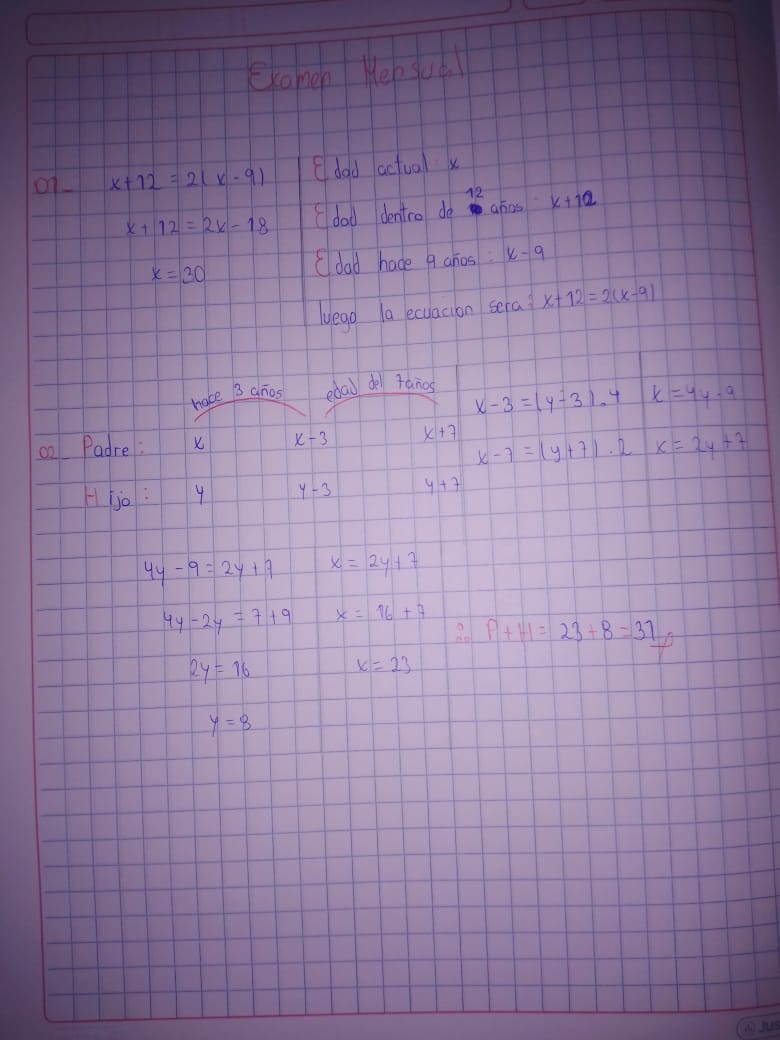 Examen Mensual
01- x+12 = 2(x-9)
x+12 = 2x-18
x=30
Edad actual: x
Edad dentro de 12 años: x+12
Edad hace 9 años: x-9
luego la ecuacion sera: x+12=2(x-9)
hace 3 años edad del 7 años
02- Padre: x x-3 x+7
Hijo: y y-3 y+7
x-3=(y-3).4 x=4y-9
x-7=(y+7).2 x=2y+7
4y-9=2y+7
4y-2y=7+9
2y=16
y=8
x=2y+7
x=16+7
x=23
∴ P+H= 23+8=31
JUS